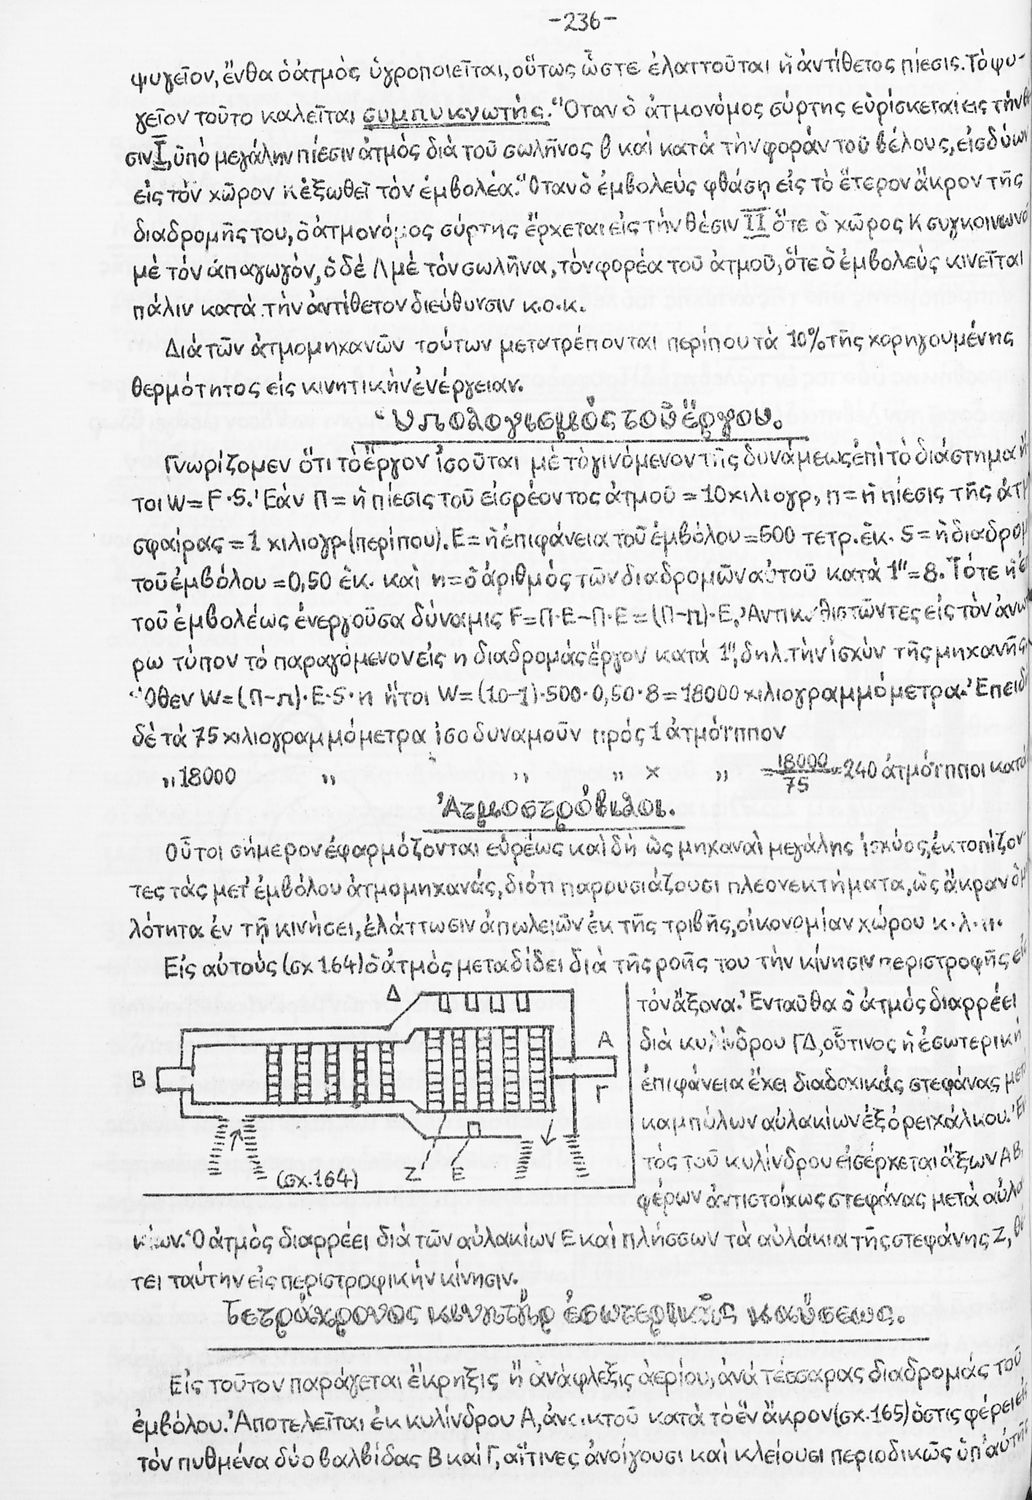 -236-
ψυγεῖον, ἔνθα ὁ ἀτμὸς ὑγροποιεῖται, οὕτως ὥστε ἐλαττοῦται ἡ ἀντίθετος πίεσις. Τὸ ψυ-
γεῖον τοῦτο καλεῖται συμπυκνωτής. Ὅταν ὁ ἀτμονόμος σύρτης εὑρίσκεται εἰς τὴν θέ
σιν I, ὑπὸ μεγάλην πίεσιν ἀτμὸς διὰ τοῦ σωλῆνος β καὶ κατὰ τὴν φορὰν τοῦ βέλους, εἰσδύων
εἰς τὸν χῶρον Κ ἐξωθεῖ τὸν ἐμβολέα. Ὅταν ὁ ἐμβολεὺς φθάσῃ εἰς τὸ ἕτερον ἄκρον τῆς
διαδρομῆς του, ὁ ἀτμονόμος σύρτης ἔρχεται εἰς τὴν θέσιν II ὅτε ὁ χῶρος Κ συγκοινωνεῖ
μὲ τὸν ἀπαγωγόν, ὁ δὲ Λ μὲ τὸν σωλῆνα, τὸν φορέα τοῦ ἀτμοῦ, ὅτε ὁ ἐμβολεὺς κινεῖται
πάλιν κατὰ τὴν ἀντίθετον διεύθυνσιν κ.ο.κ.
Διὰ τῶν ἀτμομηχανῶν τούτων μετατρέπονται περίπου τὰ 10% τῆς χορηγουμένης
θερμότητος εἰς κινητικὴν ἐνέργειαν.
Ὑπολογισμὸς τοῦ ἔργου.
Γνωρίζομεν ὅτι τὸ ἔργον ἰσοῦται μὲ τὸ γινόμενον τῆς δυνάμεως ἐπὶ τὸ διάστημα ἤ
τοι W = F·S. Ἐὰν Π = ἡ πίεσις τοῦ εἰσρέοντος ἀτμοῦ = 10 χιλιογρ, π = ἡ πίεσις τῆς ἀτμ
σφαίρας = 1 χιλιογρ. (περίπου). Ε = ἡ ἐπιφάνεια τοῦ ἐμβόλου = 500 τετρ. ἑκ. S = ἡ διαδρομ
τοῦ ἐμβόλου = 0,50 ἑκ. καὶ η = ὁ ἀριθμὸς τῶν διαδρομῶν αὐτοῦ κατὰ 1" = 8. Τότε ἡ ἐ
τοῦ ἐμβολέως ἐνεργοῦσα δύναμις F = Π·Ε - Π·Ε = (Π-π)·Ε. Ἀντικαθιστῶντες εἰς τὸν ἀνω
ρω τύπον τὸ παραγόμενον εἰς η διαδρομὰς ἔργον κατὰ 1", δηλ. τὴν ἰσχὺν τῆς μηχανῆς
Ὅθεν W = (Π-π)·Ε·S·η ἤτοι W = (10-1)·500·0,50·8 = 18000 χιλιογραμμόμετρα. Ἐπειδὴ
δὲ τὰ 75 χιλιογραμμόμετρα ἰσοδυναμοῦν πρὸς 1 ἀτμόϊππον
,, 18000 ,, ,, ,, x ,, = 18000/75 = 240 ἀτμόϊπποι κατὰ
Ἀτμοστρόβιλοι.
Οὗτοι σήμερον ἐφαρμόζονται εὐρέως καὶ δὴ ὡς μηχαναὶ μεγάλης ἰσχύος, ἐκτοπίζον
τες τὰς μετ' ἐμβόλου ἀτμομηχανάς, διότι παρουσιάζουσι πλεονεκτήματα, ὡς ἄκραν ὁμ
λότητα ἐν τῇ κινήσει, ἐλάττωσιν ἀπωλειῶν ἐκ τῆς τριβῆς, οἰκονομίαν χώρου κ.λ.π.
Εἰς αὐτοὺς (σχ 164) ὁ ἀτμὸς μεταδίδει διὰ τῆς ροῆς του τὴν κίνησιν περιστροφῆς εἰ
τὸν ἄξονα. Ἐνταῦθα ὁ ἀτμὸς διαρρέει
διὰ κυλίνδρου ΓΔ, οὗτινος ἡ ἐσωτερικὴ
ἐπιφάνεια ἔχει διαδοχικὰς στεφάνας με
καμπύλων αὐλακίων ἐξ ὀρειχάλκου. Ἐν
τὸς τοῦ κυλίνδρου εἰσέρχεται ἄξων ΑΒ,
φέρων ἀντιστοίχως στεφάνας μετὰ αὐλα
κίων. Ὁ ἀτμὸς διαρρέει διὰ τῶν αὐλακίων Ε καὶ πλήσσων τὰ αὐλάκια τῆς στεφάνης Ζ, θέ
τει ταύτην εἰς περιστροφικὴν κίνησιν.
Δ
Β
Α
Γ
(σχ. 164)
Ζ
Ε
Τετράχρονος κινητὴρ ἐσωτερικῆς καύσεως.
Εἰς τοῦτον παράγεται ἔκρηξις ἢ ἀνάφλεξις ἀερίου, ἀνὰ τέσσαρας διαδρομὰς τοῦ
ἐμβόλου. Ἀποτελεῖται ἐκ κυλίνδρου Α, ἀνοικτοῦ κατὰ τὸ ἓν ἄκρον (σχ. 165) ὅστις φέρει εἰς
τὸν πυθμένα δύο βαλβίδας Β καὶ Γ, αἵτινες ἀνοίγουσι καὶ κλείουσι περιοδικῶς ὑπ' αὐτῆς